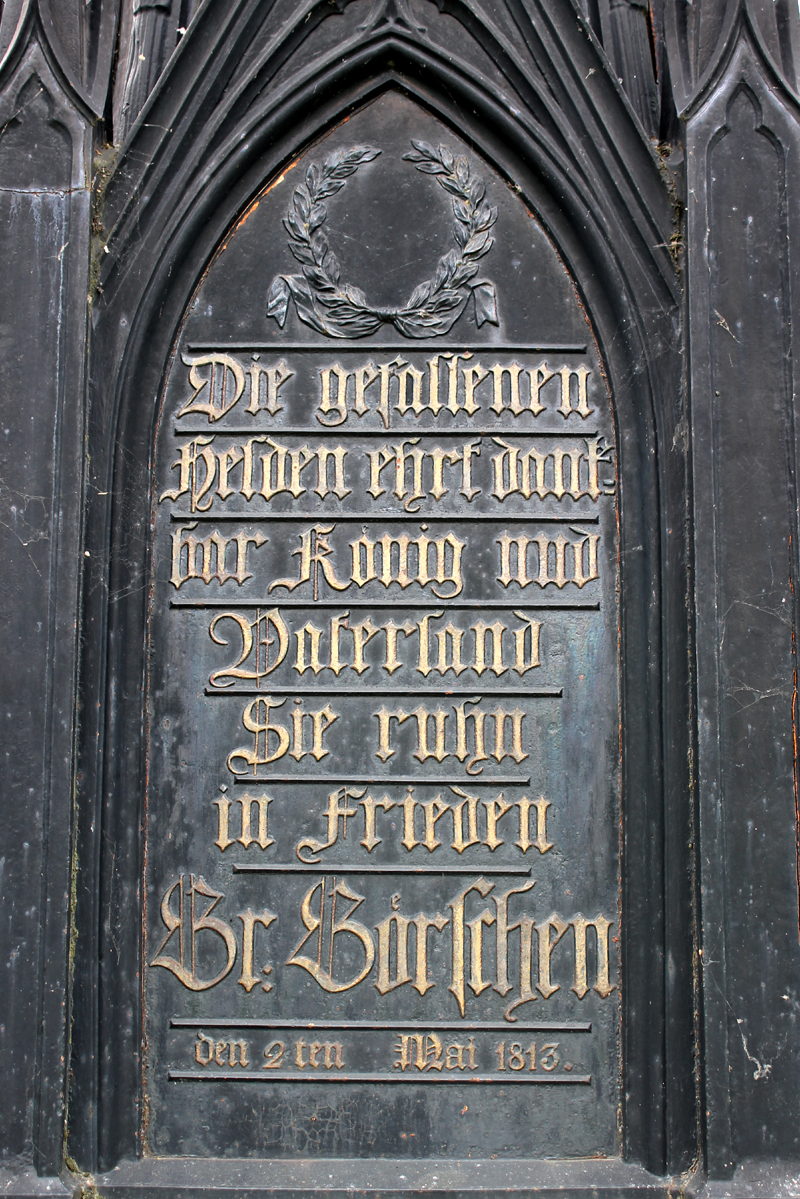 Die gefallenen
Helden ehrt dank-
bar König und
Vaterland
Sie ruhn
in Frieden
Gr. Börschen
den 2ten Mai 1813.